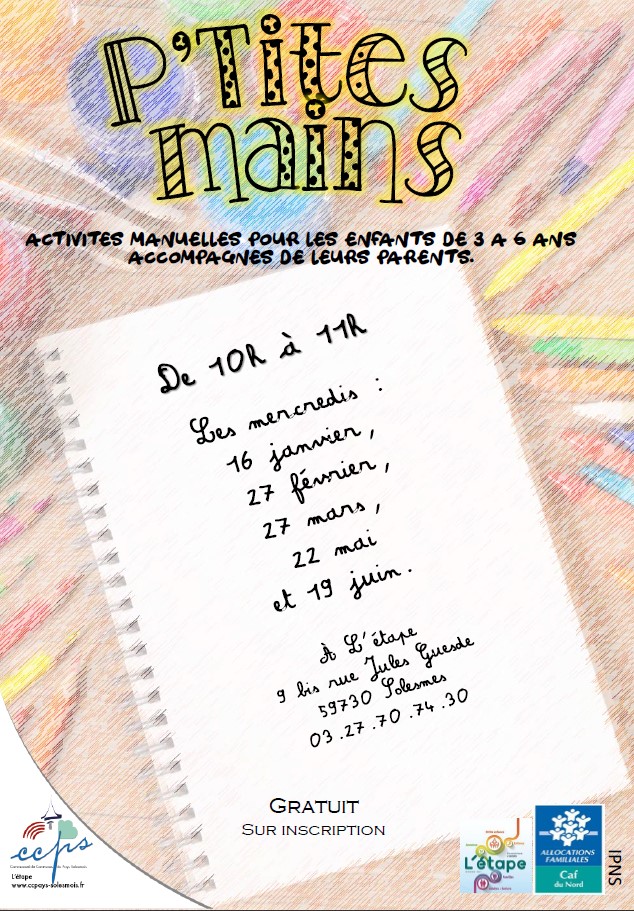 P'Tites
mains
ACTIVITES MANUELLES POUR LES ENFANTS DE 3 A 6 ANS
ACCOMPAGNES DE LEURS PARENTS.
De 10h à 11h
Les mercredis :
16 janvier,
27 février,
27 mars,
22 mai
et 19 juin.
À L'étape
9 bis rue Jules Guesde
59730 Solesmes
03.27.70.74.30
GRATUIT
SUR INSCRIPTION
ccps
Communauté de Communes du Pays Solesmois
L'étape
www.ccpays-solesmois.fr
L'étape
ALLOCATIONS
FAMILIALES
Caf
du Nord
IPNS